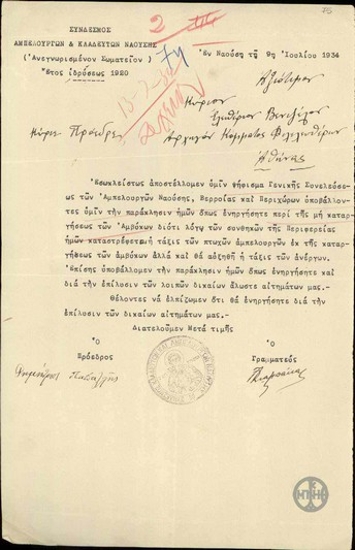 ΣΥΝΔΕΣΜΟΣ
ΑΜΠΕΛΟΥΡΓΩΝ & ΚΛΑΔΕΥΤΩΝ ΝΑΟΥΣΗΣ
(Ανεγνωρισμένον Σωματείον)
Ἔτος ἱδρύσεως 1920
Ἐν Ναούσῃ τῇ 9ῃ Ἰουλίου 1934
Ἀξιότιμον
Κύριον
Ἐλευθέριον Βενιζέλον
Ἀρχηγὸν Κόμματος Φιλελευθέρων
Ἀθήνας
Κύριε Πρόεδρε
Ἐσωκλείστως ἀποστέλλομεν ὑμῖν ψήφισμα Γενικῆς Συνελεύσε
ως τῶν Ἀμπελουργῶν Ναούσης, Βερροίας καὶ Περιχώρων ὑποβάλλον
τες ὑμῖν τὴν παράκλησιν ἡμῶν ὅπως ἐνεργήσητε περὶ τῆς μὴ καταρ
γήσεως τῶν Ἀμβύκων διότι λόγῳ τῶν συνθηκῶν τῆς Περιφερείας
ἡμῶν καταστρέφεται ἡ τάξις τῶν πτωχῶν ἀμπελουργῶν ἐκ τῆς καταρ
γήσεως τῶν ἀμβύκων ἀλλὰ καὶ θὰ αὐξηθῇ ἡ τάξις τῶν ἀνέργων.
Ἐπίσης ὑποβάλλομεν τὴν παράκλησιν ἡμῶν ὅπως ἐνεργήσητε καὶ
διὰ τὴν ἐπίλυσιν τῶν λοιπῶν δικαίων ἄλωστε αἰτημάτων μας.
Θέλοντες νὰ ἐλπίζωμεν ὅτι θὰ ἐνεργήσητε διὰ τὴν
ἐπίλυσιν τῶν δικαίων αἰτημάτων μας.
Διατελοῦμεν Μετὰ τιμῆς
Ὁ
Πρόεδρος
Ὁ
Γραμματεὺς